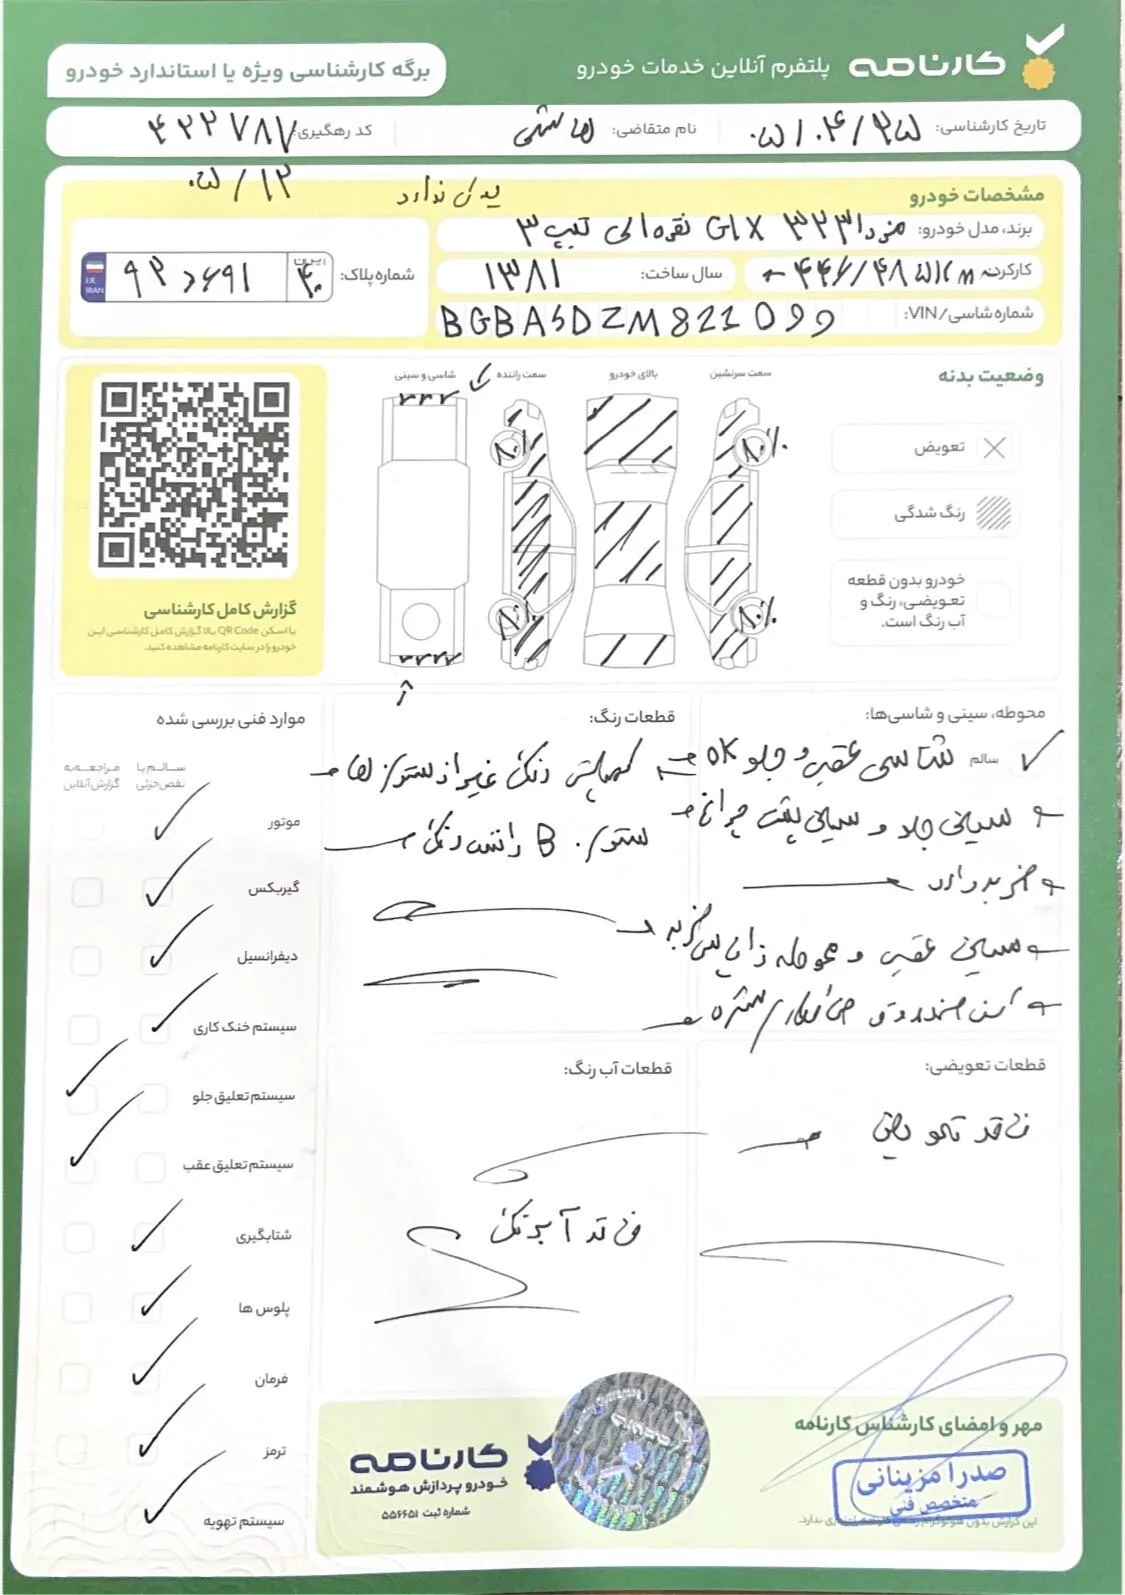 کارنامه پلتفرم آنلاین خدمات خودرو
برگه کارشناسی ویژه یا استاندارد خودرو
تاریخ کارشناسی: ۰۵/۰۴/۲۵
نام متقاضی: هاشمی
کد رهگیری: ۴۲۲۷۸۷
۰۵/۱۲
مشخصات خودرو
یدک ندارد
برند، مدل خودرو: مزدا ۳۲۳ GLX نقره‌ای تیپ ۳
کارکرد: ۴۴۶/۴۸۵ km
سال ساخت: ۱۳۸۱
شماره پلاک:
ایران ۴۰
I.R. IRAN
شماره شاسی/VIN: BGBASDZM821099
وضعیت بدنه
سمت سرنشین
بالای خودرو
سمت راننده
شاسی و سینی
تعویض
رنگ شدگی
خودرو بدون قطعه
تعویضی، رنگ و
آب رنگ است.
۸۰٪ ۸۰٪
۸۰٪ ۸۰٪
گزارش کامل کارشناسی
با اسکن QR Code بالا گزارش کامل کارشناسی این
خودرو را در سایت کارنامه مشاهده کنید.
محوطه، سینی و شاسی‌ها:
سالم
شاسی عقب و جلو ok
سینی جلو و سینی پشت چراغ
ضربه دارد
سینی عقب و محوطه زاپاس ضربه
کف صندوق صافکاری شده
قطعات رنگ:
کمپلت رنگ غیر از ستون ها
ستون B راست رنگ
قطعات تعویضی:
فاقد تعویض
قطعات آب رنگ:
فاقد آبرنگ
موارد فنی بررسی شده
سالم یا
نقص جزئی
مراجعه به
گزارش آنلاین
موتور
گیربکس
دیفرانسیل
سیستم خنک کاری
سیستم تعلیق جلو
سیستم تعلیق عقب
شتابگیری
پلوس ها
فرمان
ترمز
سیستم تهویه
مهر و امضای کارشناس کارنامه
صدرا مزینانی
متخصص فنی
کارنامه
خودرو پردازش هوشمند
شماره ثبت ۵۵۶۶۵۱